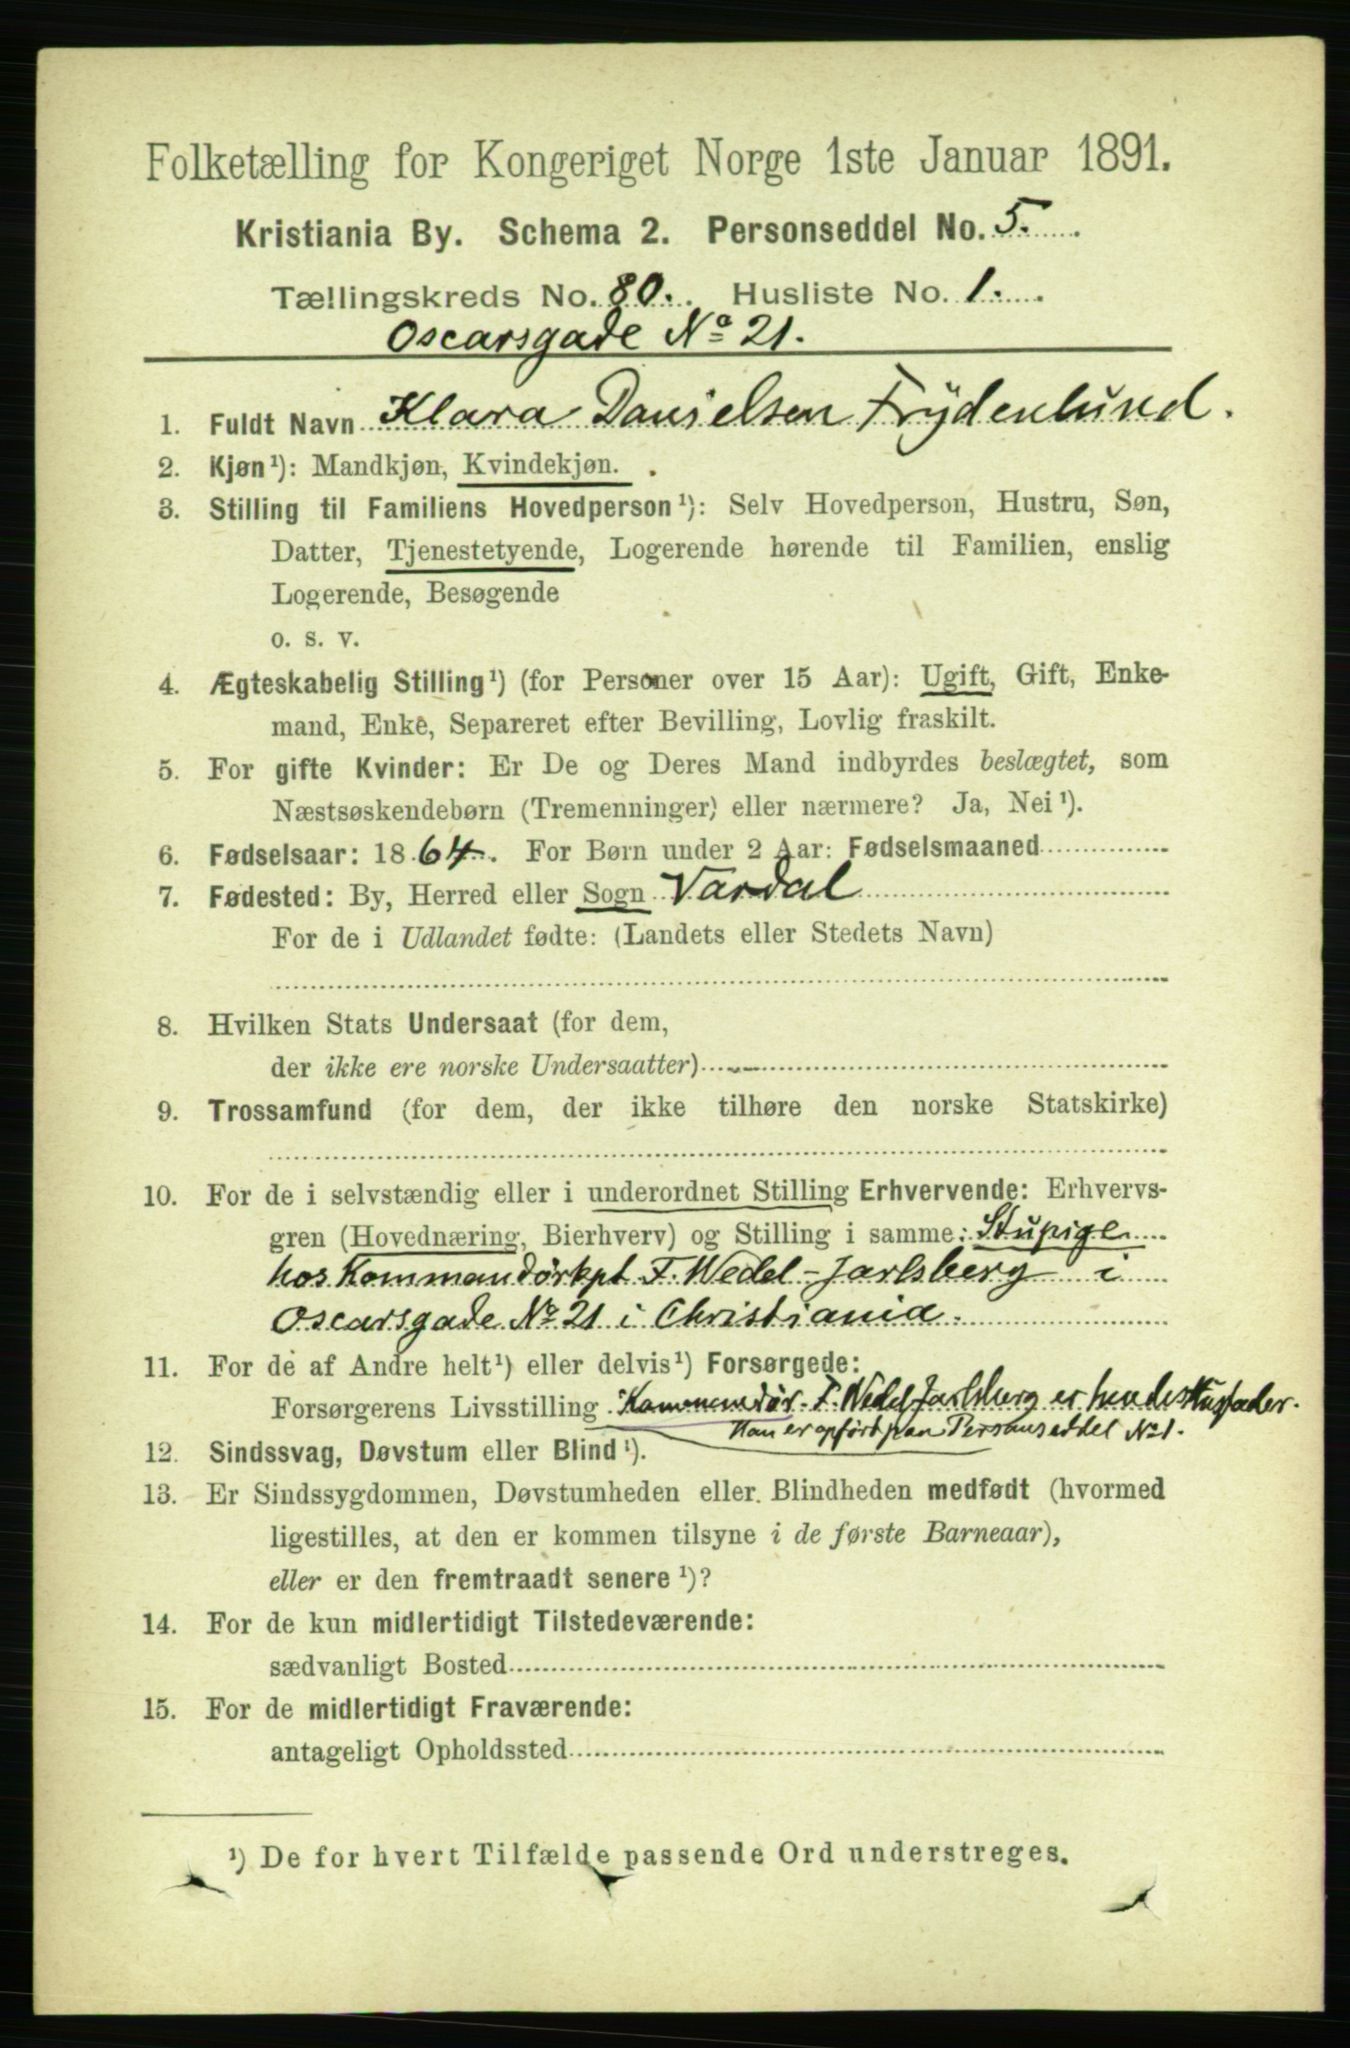 Folketælling for Kongeriget Norge 1ste Januar 1891.
Kristiania By. Schema 2. Personseddel No. 5.
Tællingskreds No. 80. Husliste No. 1.
Oscarsgade No 21.
1. Fuldt Navn Klara Danielsen Frydenlund.
2. Kjøn ¹): Mandkjøn, Kvindekjøn.
3. Stilling til Familiens Hovedperson ¹): Selv Hovedperson, Hustru, Søn,
Datter, Tjenestetyende, Logerende hørende til Familien, enslig
Logerende, Besøgende
o. s. v.
4. Ægteskabelig Stilling ¹) (for Personer over 15 Aar): Ugift, Gift, Enke-
mand, Enke, Separeret efter Bevilling, Lovlig fraskilt.
5. For gifte Kvinder: Er De og Deres Mand indbyrdes beslægtet, som
Næstsøskendebørn (Tremenninger) eller nærmere? Ja, Nei ¹).
6. Fødselsaar: 1864. For Børn under 2 Aar: Fødselsmaaned
7. Fødested: By, Herred eller Sogn Vardal
For de i Udlandet fødte: (Landets eller Stedets Navn)
8. Hvilken Stats Undersaat (for dem,
der ikke ere norske Undersaatter)
9. Trossamfund (for dem, der ikke tilhøre den norske Statskirke)
10. For de i selvstændig eller i underordnet Stilling Erhvervende: Erhvervs-
gren (Hovednæring, Bierhverv) og Stilling i samme: Stupige
hos Kommandørkpt F. Wedel-Jarlsberg i
Oscarsgade No 21 i Christiania.
11. For de af Andre helt ¹) eller delvis ¹) Forsørgede:
Forsørgerens Livsstilling Kommandør. F. Wedel Jarlsberg er hendes Husfader.
Han er opført paa Personseddel No 1.
12. Sindssvag, Døvstum eller Blind ¹).
13. Er Sindssygdommen, Døvstumheden eller Blindheden medfødt (hvormed
ligestilles, at den er kommen tilsyne i de første Barneaar),
eller er den fremtraadt senere ¹)?
14. For de kun midlertidigt Tilstedeværende:
sædvanligt Bosted
15. For de midlertidigt Fraværende:
antageligt Opholdssted
¹) De for hvert Tilfælde passende Ord understreges.